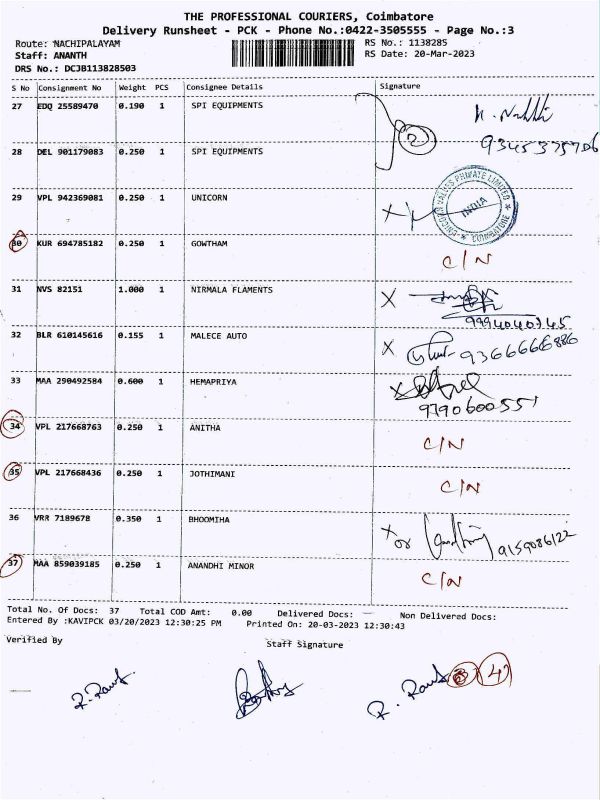 THE PROFESSIONAL COURIERS, Coimbatore
Delivery Runsheet - PCK - Phone No.:0422-3505555 - Page No.:3
Route: NACHIPALAYAM RS No.: 1138285
Staff: ANANTH RS Date: 20-Mar-2023
DRS No.: DCJB113828503
S No Consignment No Weight PCS Consignee Details Signature
27 EDQ 25589470 0.190 1 SPI EQUIPMENTS
2
9345375706
28 DEL 901179083 0.250 1 SPI EQUIPMENTS
29 VPL 942369081 0.250 1 UNICORN X
UNICORN VALVES PRIVATE LIMITED
INDIA
COIMBATORE
30 KUR 694785182 0.250 1 GOWTHAM C/N
31 NVS 82151 1.000 1 NIRMALA FLAMENTS X
9994040745
32 BLR 610145616 0.155 1 MALECE AUTO X 9366666886
33 MAA 290492584 0.600 1 HEMAPRIYA X
9790600551
34 VPL 217668763 0.250 1 ANITHA C/N
35 VPL 217668436 0.250 1 JOTHIMANI C/N
36 VRR 7189678 0.350 1 BHOOMIHA X
9159086122
37 MAA 859039185 0.250 1 ANANDHI MINOR C/N
Total No. Of Docs: 37 Total COD Amt: 0.00 Delivered Docs: — Non Delivered Docs:
Entered By :KAVIPCK 03/20/2023 12:30:25 PM Printed On: 20-03-2023 12:30:43
Verified By Staff Signature
4